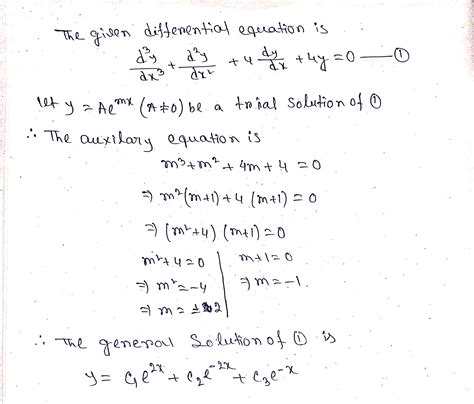 The given differential equation is
d³y/dx³ + d²y/dx² + 4 dy/dx + 4y = 0 —— ①
let y = Ae^mx (A ≠ 0) be a trial solution of ①
∴ The auxilary equation is
m³ + m² + 4m + 4 = 0
⇒ m²(m+1) + 4 (m+1) = 0
⇒ (m²+4) (m+1) = 0
m²+4 = 0 | m+1 = 0
⇒ m² = -4 | ⇒ m = -1.
⇒ m = ±2
∴ The general Solution of ① is
y = c₁e^2x + c₂e^-2x + c₃e^-x